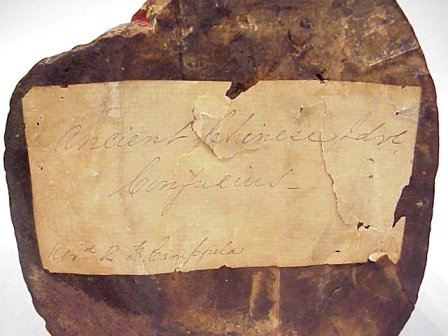 Ancient Chinese Idol
Confucius -
R. E. Campfield